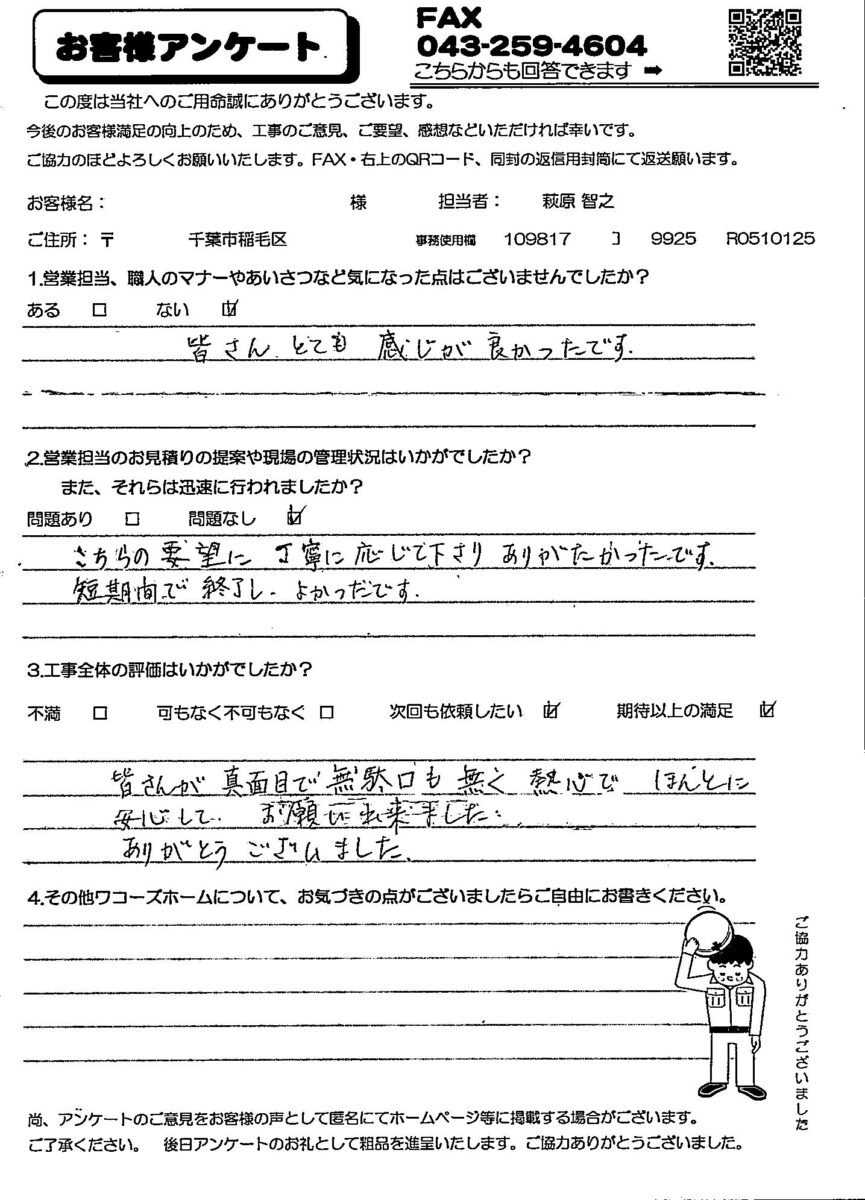 お客様アンケート
FAX
043-259-4604
こちらからも回答できます ➡
この度は当社へのご用命誠にありがとうございます。
今後のお客様満足の向上のため、工事のご意見、ご要望、感想などいただければ幸いです。
ご協力のほどよろしくお願いいたします。FAX・右上のQRコード、同封の返信用封筒にて返送願います。
お客様名： 様 担当者： 萩原 智之
ご住所：〒 千葉市稲毛区 事務使用欄 109817 J 9925 R0510125
1.営業担当、職人のマナーやあいさつなど気になった点はございませんでしたか？
ある □ ない ☑
皆さん とても 感じが 良かったです.
2.営業担当のお見積りの提案や現場の管理状況はいかがでしたか？
また、それらは迅速に行われましたか？
問題あり □ 問題なし ☑
こちらの要望に 丁寧に応じて下さり ありがたかったです.
短期間で 終了し. よかったです.
3.工事全体の評価はいかがでしたか？
不満 □ 可もなく不可もなく □ 次回も依頼したい ☑ 期待以上の満足 ☑
皆さんが 真面目で 無駄口も 無く 熱心で ほんとに
安心して. お願い出来ました.
ありがとう ございました.
4.その他ワコーズホームについて、お気づきの点がございましたらご自由にお書きください。
ご協力ありがとうございました
尚、アンケートのご意見をお客様の声として匿名にてホームページ等に掲載する場合がございます。
ご了承ください。 後日アンケートのお礼として粗品を進呈いたします。ご協力ありがとうございました。